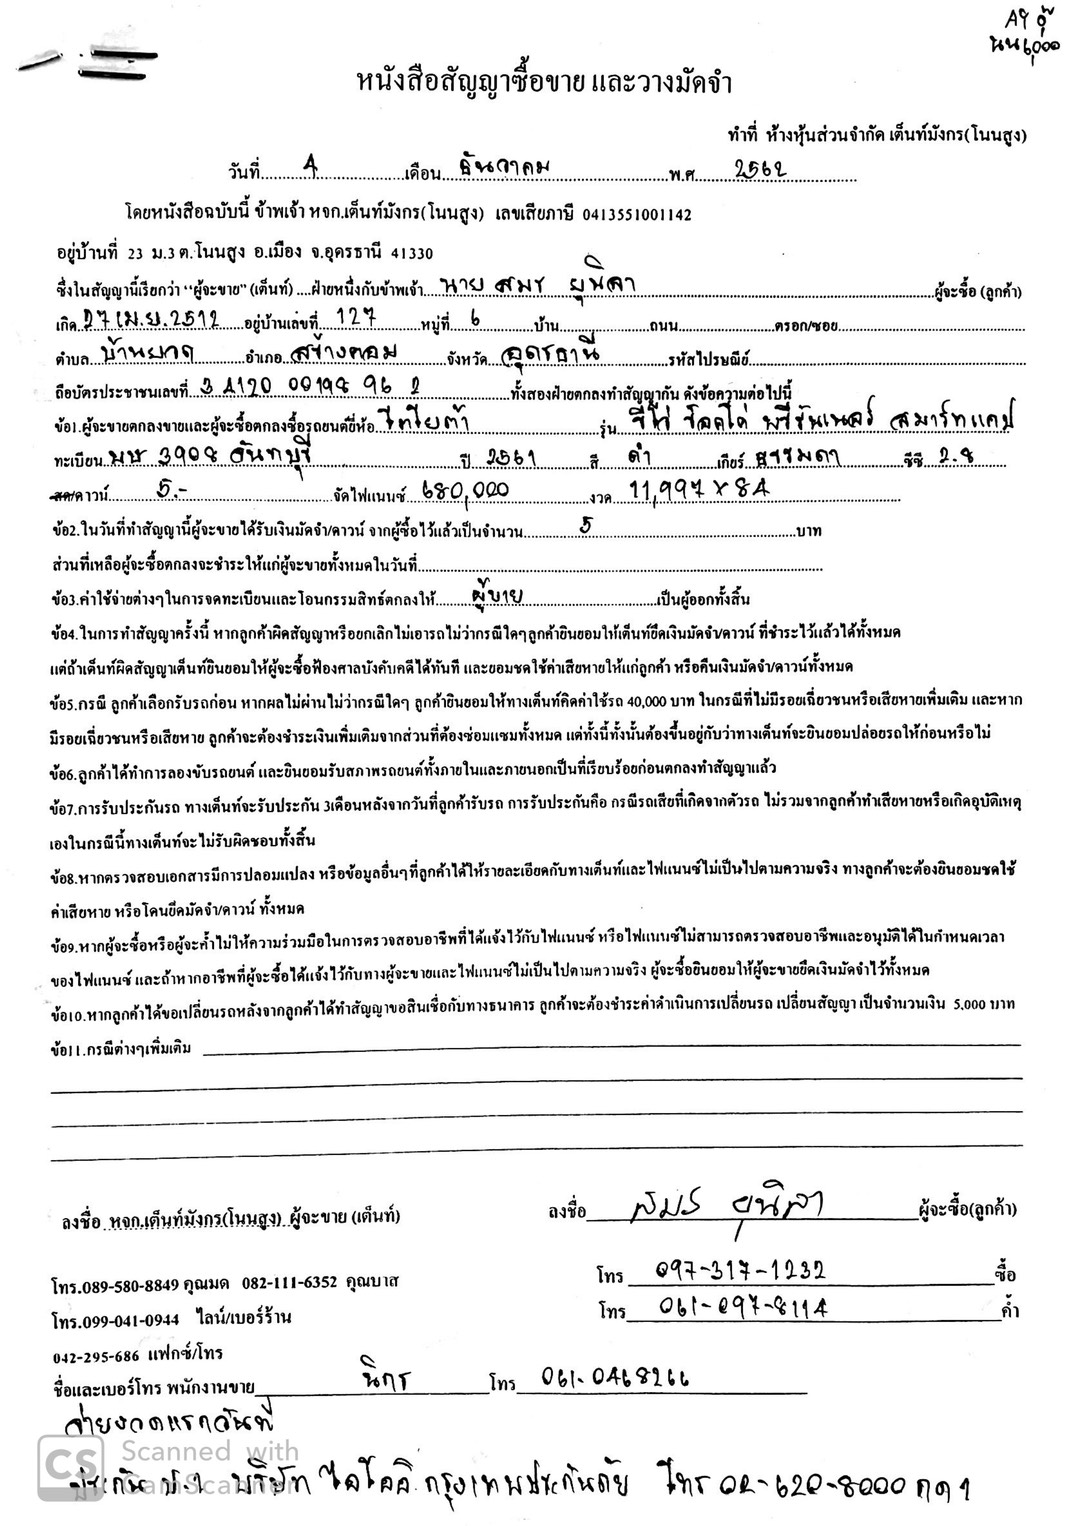 AY อุ๊
นน6,000
หนังสือสัญญาซื้อขาย และวางมัดจำ
ทำที่ ห้างหุ้นส่วนจำกัด เต็นท์มังกร(โนนสูง)
วันที่ 4 เดือน ธันวาคม พ.ศ. 2562
โดยหนังสือฉบับนี้ ข้าพเจ้า หจก.เต็นท์มังกร(โนนสูง) เลขเสียภาษี 0413551001142
อยู่บ้านที่ 23 ม.3 ต.โนนสูง อ.เมือง จ.อุดรธานี 41330
ซึ่งในสัญญานี้เรียกว่า "ผู้จะขาย" (เต็นท์) ....ฝ่ายหนึ่งกับข้าพเจ้า นาย สมร ยุนิลา ผู้จะซื้อ (ลูกค้า)
เกิด 27 เม.ย. 2512 อยู่บ้านเลขที่ 127 หมู่ที่ 6 บ้าน ถนน ตรอก/ซอย
ตำบล บ้านยวด อำเภอ สร้างคอม จังหวัด อุดรธานี รหัสไปรษณีย์
ถือบัตรประชาชนเลขที่ 3 4120 00198 96 2 ทั้งสองฝ่ายตกลงทำสัญญากัน ดังข้อความต่อไปนี้
ข้อ1.ผู้จะขายตกลงขายและผู้จะซื้อตกลงซื้อรถยนต์ยี่ห้อ โตโยต้า รุ่น รีโว่ ร็อคโค่ พรีรันเนอร์ สมาร์ทแคป
ทะเบียน 3908 จันทบุรี ปี 2561 สี ดำ เกียร์ ธรรมดา ซีซี 2.8
สด/ดาวน์ 5.- จัดไฟแนนซ์ 680,000 งวด 11,997 x 84
ข้อ2.ในวันที่ทำสัญญานี้ผู้จะขายได้รับเงินมัดจำ/ดาวน์ จากผู้ซื้อไว้แล้วเป็นจำนวน 5 บาท
ส่วนที่เหลือผู้จะซื้อตกลงจะชำระให้แก่ผู้จะขายทั้งหมดในวันที่
ข้อ3.ค่าใช้จ่ายต่างๆในการจดทะเบียนและโอนกรรมสิทธ์ตกลงให้ ผู้ขาย เป็นผู้ออกทั้งสิ้น
ข้อ4.ในการทำสัญญาครั้งนี้ หากลูกค้าผิดสัญญาหรือยกเลิกไม่เอารถไม่ว่ากรณีใดๆลูกค้ายินยอมให้เต็นท์ยึดเงินมัดจำ/ดาวน์ ที่ชำระไว้แล้วได้ทั้งหมด
แต่ถ้าเต็นท์ผิดสัญญาเต็นท์ยินยอมให้ผู้จะซื้อฟ้องศาลบังคับคดีได้ทันที และยอมชดใช้ค่าเสียหายให้แก่ลูกค้า หรือคืนเงินมัดจำ/ดาวน์ทั้งหมด
ข้อ5.กรณี ลูกค้าเลือกรับรถก่อน หากผลไม่ผ่านไม่ว่ากรณีใดๆ ลูกค้ายินยอมให้ทางเต็นท์คิดค่าใช้รถ 40,000 บาท ในกรณีที่ไม่มีรอยเฉี่ยวชนหรือเสียหายเพิ่มเติม และหาก
มีรอยเฉี่ยวชนหรือเสียหาย ลูกค้าจะต้องชำระเงินเพิ่มเติมจากส่วนที่ต้องซ่อมแซมทั้งหมด แต่ทั้งนี้ทั้งนั้นต้องขึ้นอยู่กับว่าทางเต็นท์จะยินยอมปล่อยรถให้ก่อนหรือไม่
ข้อ6.ลูกค้าได้ทำการลองขับรถยนต์ และยินยอมรับสภาพรถยนต์ทั้งภายในและภายนอกเป็นที่เรียบร้อยก่อนตกลงทำสัญญาแล้ว
ข้อ7.การรับประกันรถ ทางเต็นท์จะรับประกัน 3เดือนหลังจากวันที่ลูกค้ารับรถ การรับประกันคือ กรณีรถเสียที่เกิดจากตัวรถ ไม่รวมจากลูกค้าทำเสียหายหรือเกิดอุบัติเหตุ
เองในกรณีนี้ทางเต็นท์จะไม่รับผิดชอบทั้งสิ้น
ข้อ8.หากตรวจสอบเอกสารมีการปลอมแปลง หรือข้อมูลอื่นๆที่ลูกค้าได้ให้รายละเอียดกับทางเต็นท์และไฟแนนซ์ไม่เป็นไปตามความจริง ทางลูกค้าจะต้องยินยอมชดใช้
ค่าเสียหาย หรือโดนยึดมัดจำ/ดาวน์ ทั้งหมด
ข้อ9.หากผู้จะซื้อหรือผู้จะค้ำไม่ให้ความร่วมมือในการตรวจสอบอาชีพที่ได้แจ้งไว้กับไฟแนนซ์ หรือไฟแนนซ์ไม่สามารถตรวจสอบอาชีพและอนุมัติได้ในกำหนดเวลา
ของไฟแนนซ์ และถ้าหากอาชีพที่ผู้จะซื้อได้แจ้งไว้กับทางผู้จะขายและไฟแนนซ์ไม่เป็นไปตามความจริง ผู้จะซื้อยินยอมให้ผู้จะขายยึดเงินมัดจำไว้ทั้งหมด
ข้อ10.หากลูกค้าได้ขอเปลี่ยนรถหลังจากลูกค้าได้ทำสัญญาขอสินเชื่อกับทางธนาคาร ลูกค้าจะต้องชำระค่าดำเนินการเปลี่ยนรถ เปลี่ยนสัญญา เป็นจำนวนเงิน 5,000 บาท
ข้อ11.กรณีต่างๆเพิ่มเติม
ลงชื่อ หจก.เต็นท์มังกร(โนนสูง) ผู้จะขาย (เต็นท์) ลงชื่อ สมร ยุนิลา ผู้จะซื้อ(ลูกค้า)
โทร.089-580-8849 คุณมด 082-111-6352 คุณบาส โทร 097-317-1232 ซื้อ
โทร.099-041-0944 ไลน์/เบอร์ร้าน โทร 061-097-8114 ค้ำ
042-295-686 แฟกซ์/โทร
ชื่อและเบอร์โทร พนักงานขาย นิกร โทร 061-0468266
จ่ายงวดแรกวันที่
CS Scanned with
CamScanner
ประกัน ป.1 บริษัท ไอโออิ กรุงเทพประกันภัย โทร 02-620-8000 กด 1